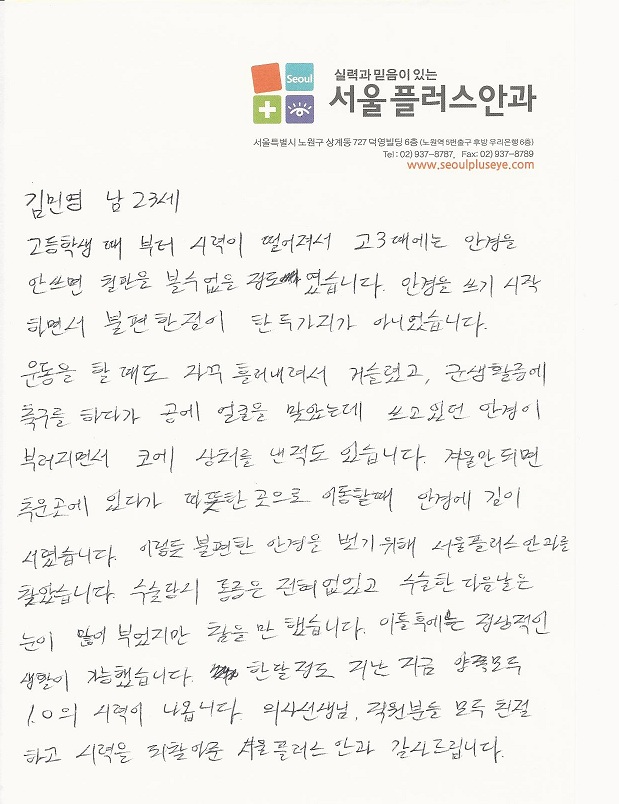 Seoul
실력과 믿음이 있는
서울플러스안과
서울특별시 노원구 상계동 727 덕영빌딩 6층 (노원역 5번출구 후방 우리은행 6층)
Tel : 02) 937-8787, Fax: 02) 937-8789
www.seoulpluseye.com
김민영 남 23세
고등학생 때 부터 시력이 떨어져서 고3때에는 안경을
안쓰면 칠판을 볼수없을 정도였습니다. 안경을 쓰기 시작
하면서 불편한점이 한두가지가 아니었습니다.
운동을 할 때도 자꾸 흘러내려서 거슬렸고, 군생활중에
축구를 하다가 공에 얼굴을 맞았는데 쓰고있던 안경이
부러지면서 코에 상처를 낸적도 있습니다. 겨울만 되면
추운곳에 있다가 따뜻한 곳으로 이동할때 안경에 김이
서렸습니다. 이렇듯 불편한 안경을 벗기위해 서울플러스안과를
찾았습니다. 수술당시 통증은 전혀없었고 수술한 다음날은
눈이 많이 부었지만 참을 만 했습니다. 이틀후에는 정상적인
생활이 가능했습니다. 한달정도 지난 지금 양쪽모두
1.0의 시력이 나옵니다. 의사선생님, 직원분들 모두 친절
하고 시력을 되찾아준 서울플러스 안과 감사드립니다.